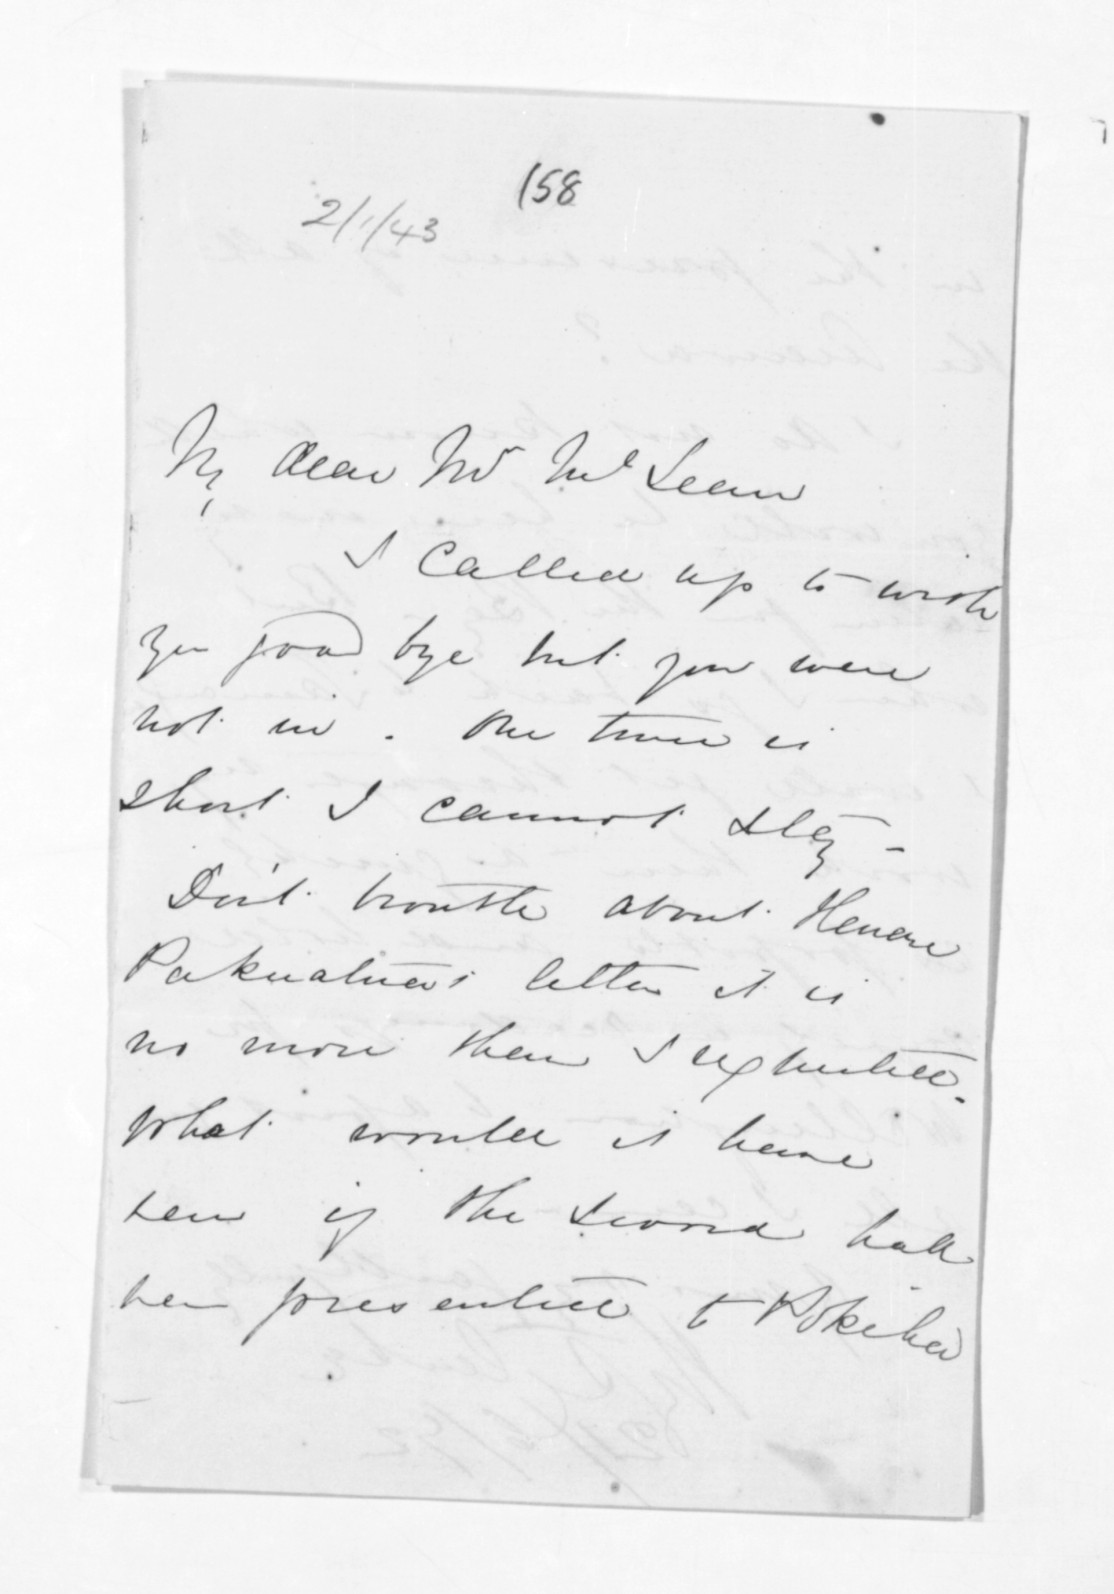 158
2/1/43
My dear Mr McLean
I called up to wish
you good bye but you were
not in. The time is
short I cannot stay -
Don't trouble about Henare
Pakuatua's letter it is
no more than I expected.
What would it have
been if the sword had
been presented to Pokiha